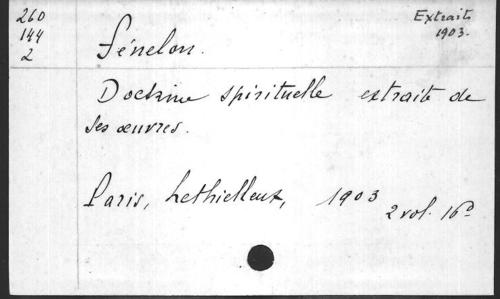 260
144
2
Extraits
1903.
Fénelon.
Doctrine spirituelle extraite de
ses œuvres.
Paris, Lethielleux, 1903
2 vol. 16°